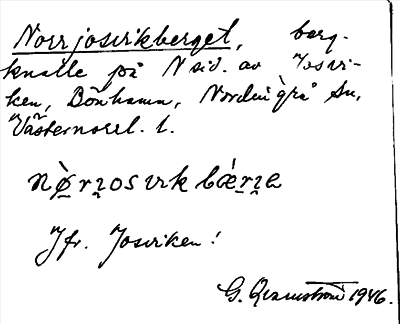 Norrjosvikberget, berg-
knalle på N sid. av Josvi-
ken, Bönhamn, Nordingrå sn,
Västernorrl. l.
nø̀rʒosvikbǽrʒe
Jfr. Josviken!
G. 1946.